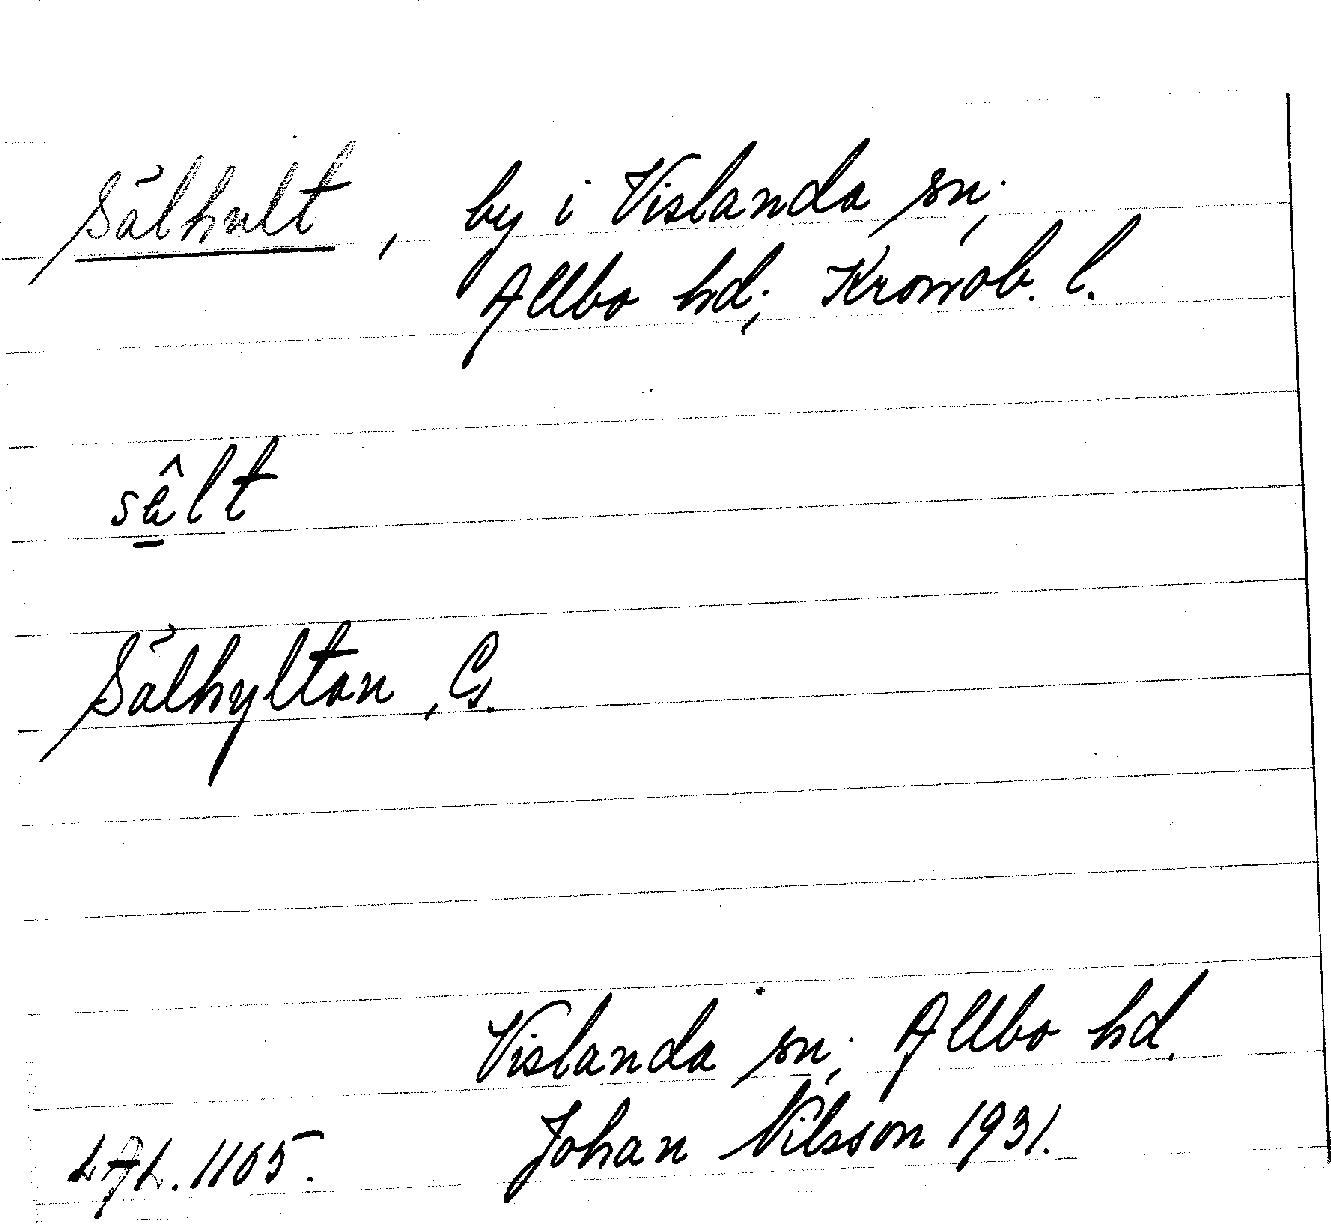 Sålhult, by i Vislanda sn;
Allbo hd; Kronob. l.
sâlt
Sålhyltan, G.
Vislanda sn; Allbo hd.
LAL. 1105. Johan Nilsson 1931.